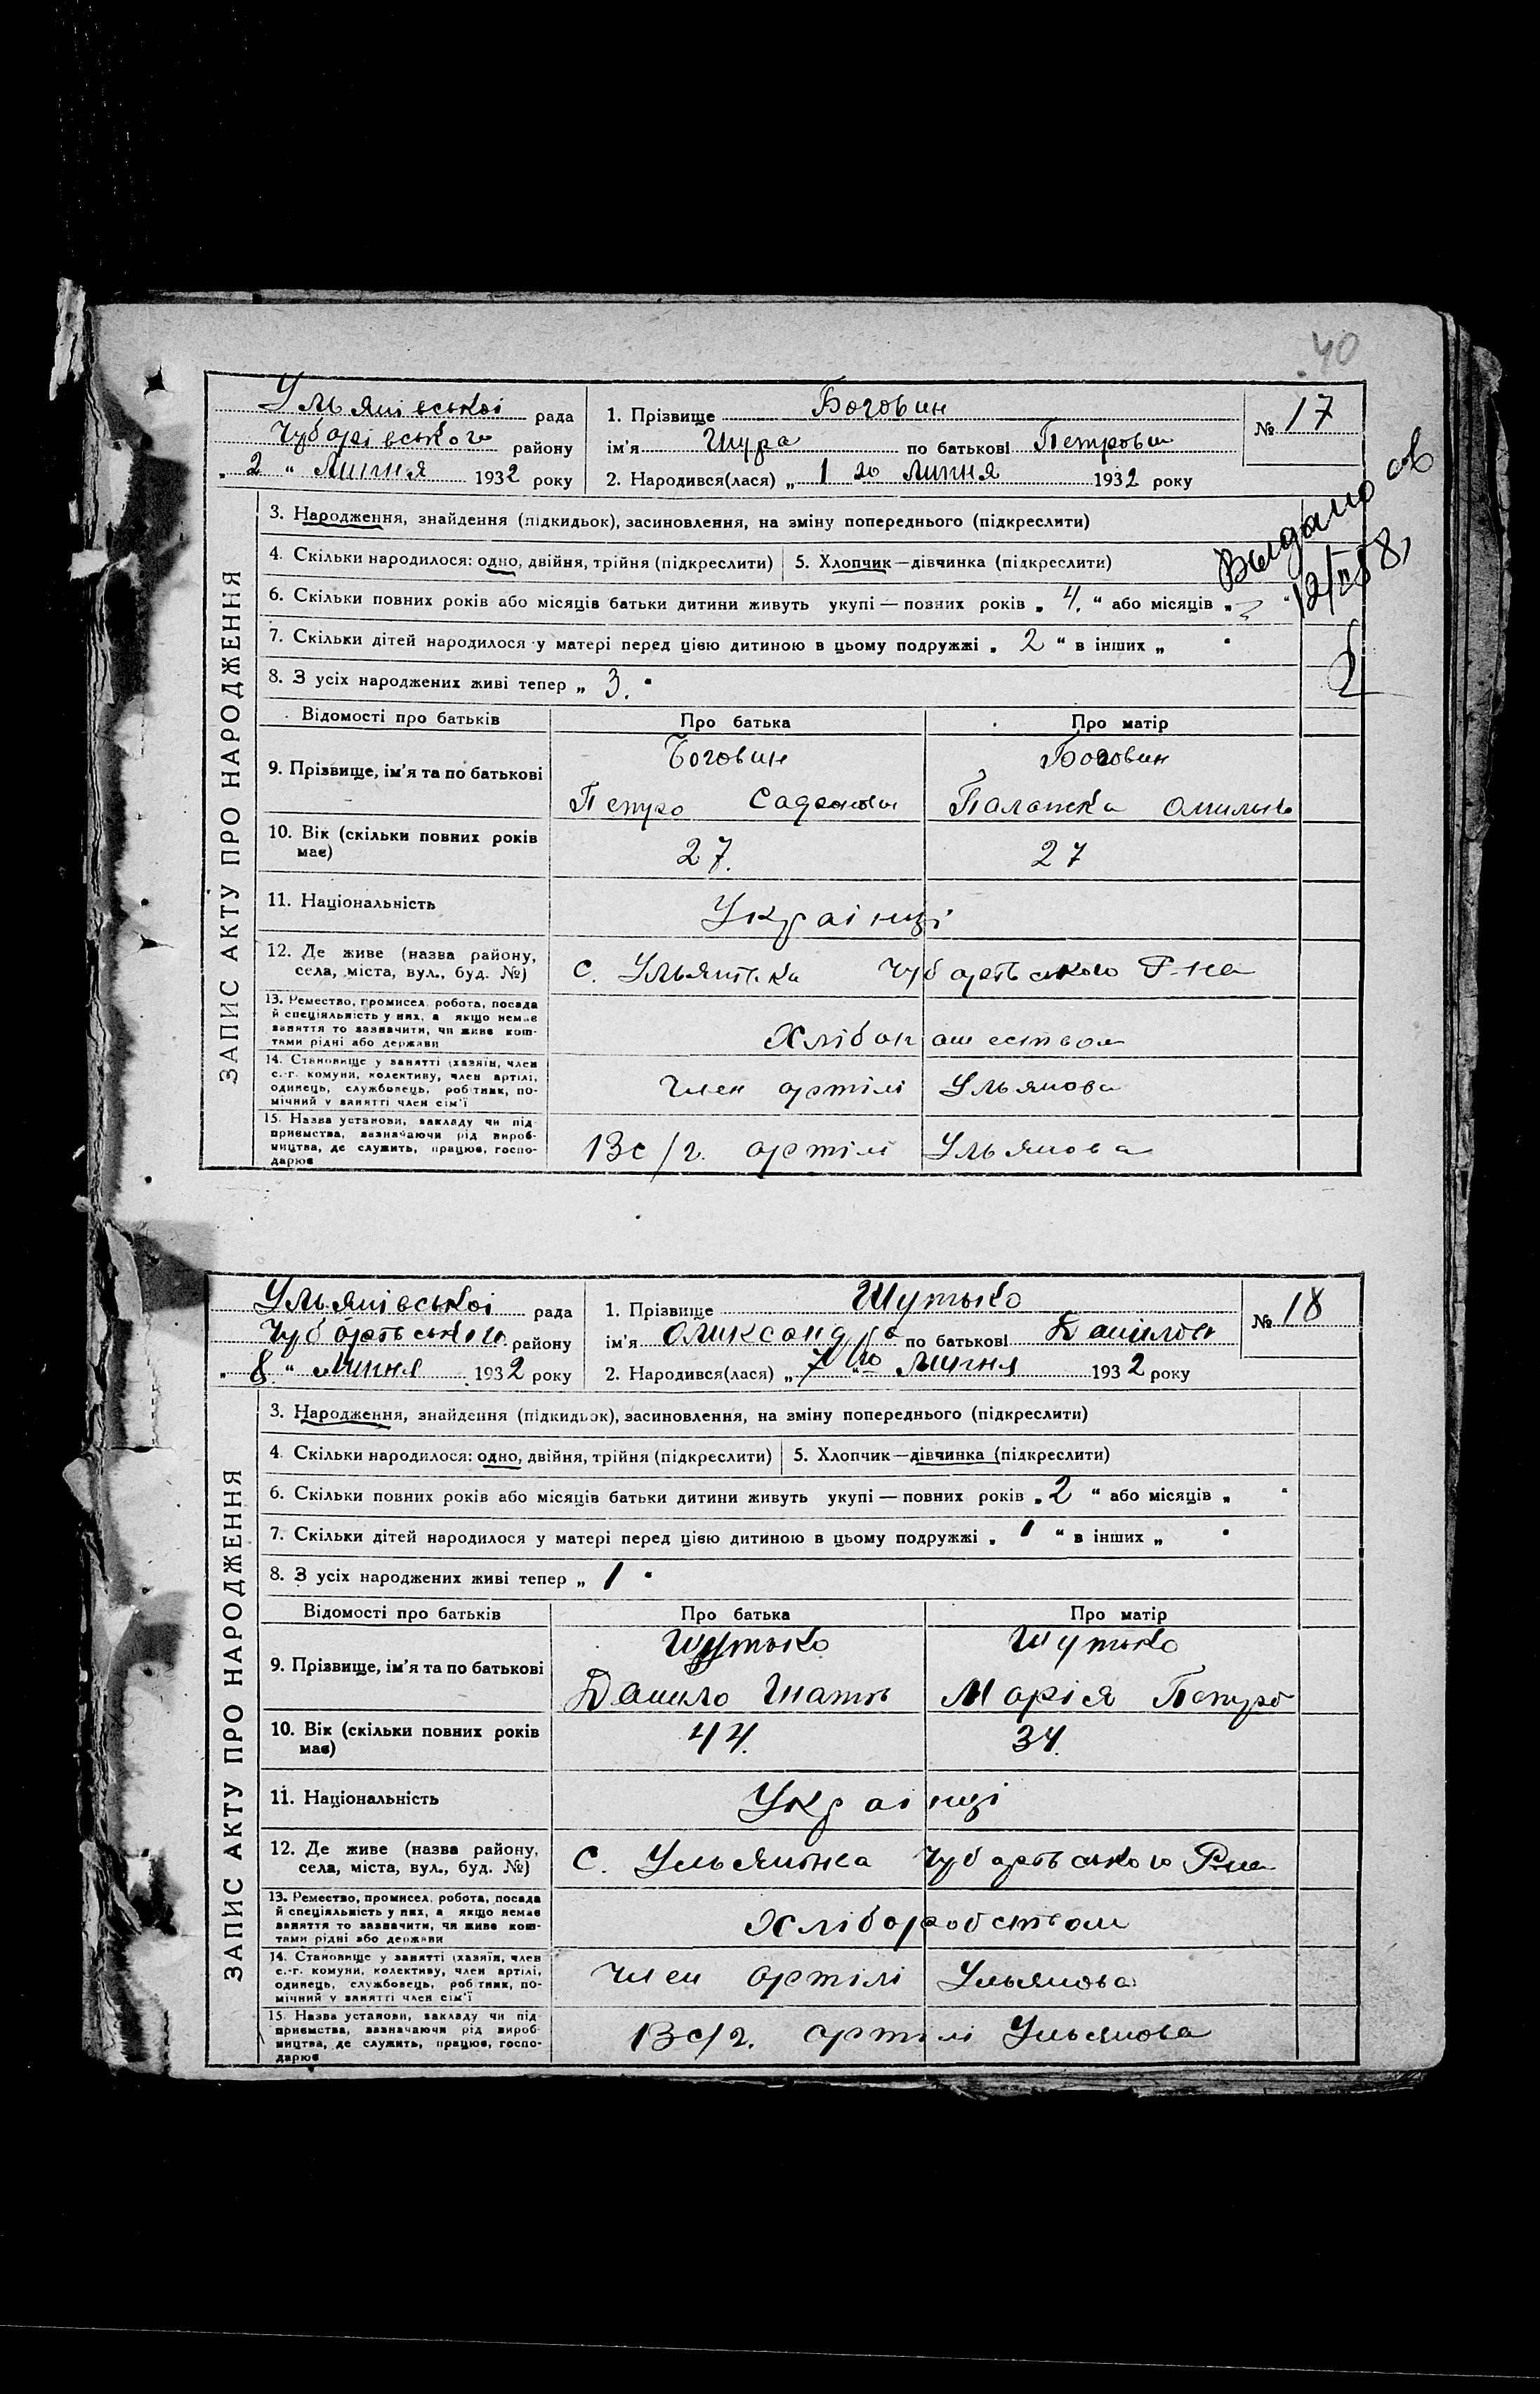 40
Ульянівської рада
Чубарівського району
„2“ Липня 1932 року
1. Прізвище Боговин
ім'я Шура по батькові Петрови
2. Народився(лася) „1 го липня 1932 року
№ 17
Выдано св
ЗАПИС АКТУ ПРО НАРОДЖЕННЯ
3. Народження, знайдення (підкидьок), засиновлення, на зміну попереднього (підкреслити)
4. Скільки народилося: одно, двійня, трійня (підкреслити) 5. Хлопчик—дівчинка (підкреслити)
6. Скільки повних років або місяців батьки дитини живуть укупі — повних років „4.“ або місяців „ “
7. Скільки дітей народилося у матері перед цією дитиною в цьому подружжі „2“ в інших „ “
8. З усіх народжених живі тепер „3.“
Відомості про батьків Про батька Про матір
9. Прізвище, ім'я та по батькові
Боговин Боговин
Петро Палашка
10. Вік (скільки повних років має) 27. 27
11. Національність Українці
12. Де живе (назва району, села, міста, вул., буд. №) с. Ульянівка Чубарівського Р-на
13. Ремество, промисел, робота, посада
й спеціяльність у них, а якщо немає
заняття то зазначити, чи живе кош-
тами рідні або держави
Хлібопашеством
14. Становище у занятті (хазяїн, член
с.-г. комуни, колективу, член артілі,
одинець, службовець, робітник, по-
мічний у занятті член сім'ї
Член артілі Ульянова
15. Назва установи, закладу чи під
приємства, зазначаючи рід вироб-
ництва, де служить, працює, госпо-
дарює
В с/г. артілі Ульянова
Ульянівської рада
Чубарівського району
„8.“ Липня 1932 року
1. Прізвище Шутько
ім'я Оликсандра по батькові Данілов
2. Народився(лася) „7“ го Липня 1932 року
№ 18
ЗАПИС АКТУ ПРО НАРОДЖЕННЯ
3. Народження, знайдення (підкидьок), засиновлення, на зміну попереднього (підкреслити)
4. Скільки народилося: одно, двійня, трійня (підкреслити) 5. Хлопчик—дівчинка (підкреслити)
6. Скільки повних років або місяців батьки дитини живуть укупі — повних років „2“ або місяців „ “
7. Скільки дітей народилося у матері перед цією дитиною в цьому подружжі „1“ в інших „ “
8. З усіх народжених живі тепер „1“
Відомості про батьків Про батька Про матір
9. Прізвище, ім'я та по батькові
Шутько Шутько
Данило Марія Петро
10. Вік (скільки повних років має) 44. 34.
11. Національність Українці
12. Де живе (назва району, села, міста, вул., буд. №) с. Ульянівка Чубарівського Р-на
13. Ремество, промисел, робота, посада
й спеціяльність у них, а якщо немає
заняття то зазначити, чи живе кош-
тами рідні або держави
Хліборобством
14. Становище у занятті (хазяїн, член
с.-г. комуни, колективу, член артілі,
одинець, службовець, робітник, по-
мічний у занятті член сім'ї
Член артілі Ульянова
15. Назва установи, закладу чи під
приємства, зазначаючи рід вироб-
ництва, де служить, працює, госпо-
дарює
В с/г. артілі Ульянова